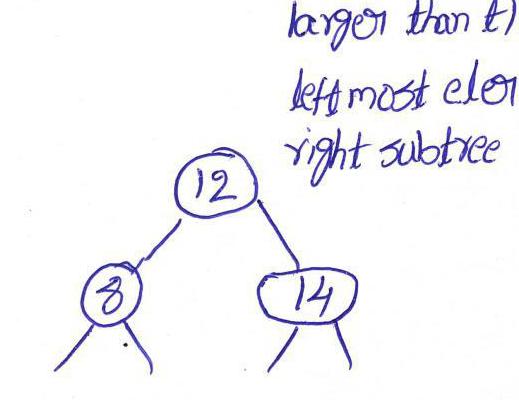 larger than
leftmost
right subtree
12
8
14